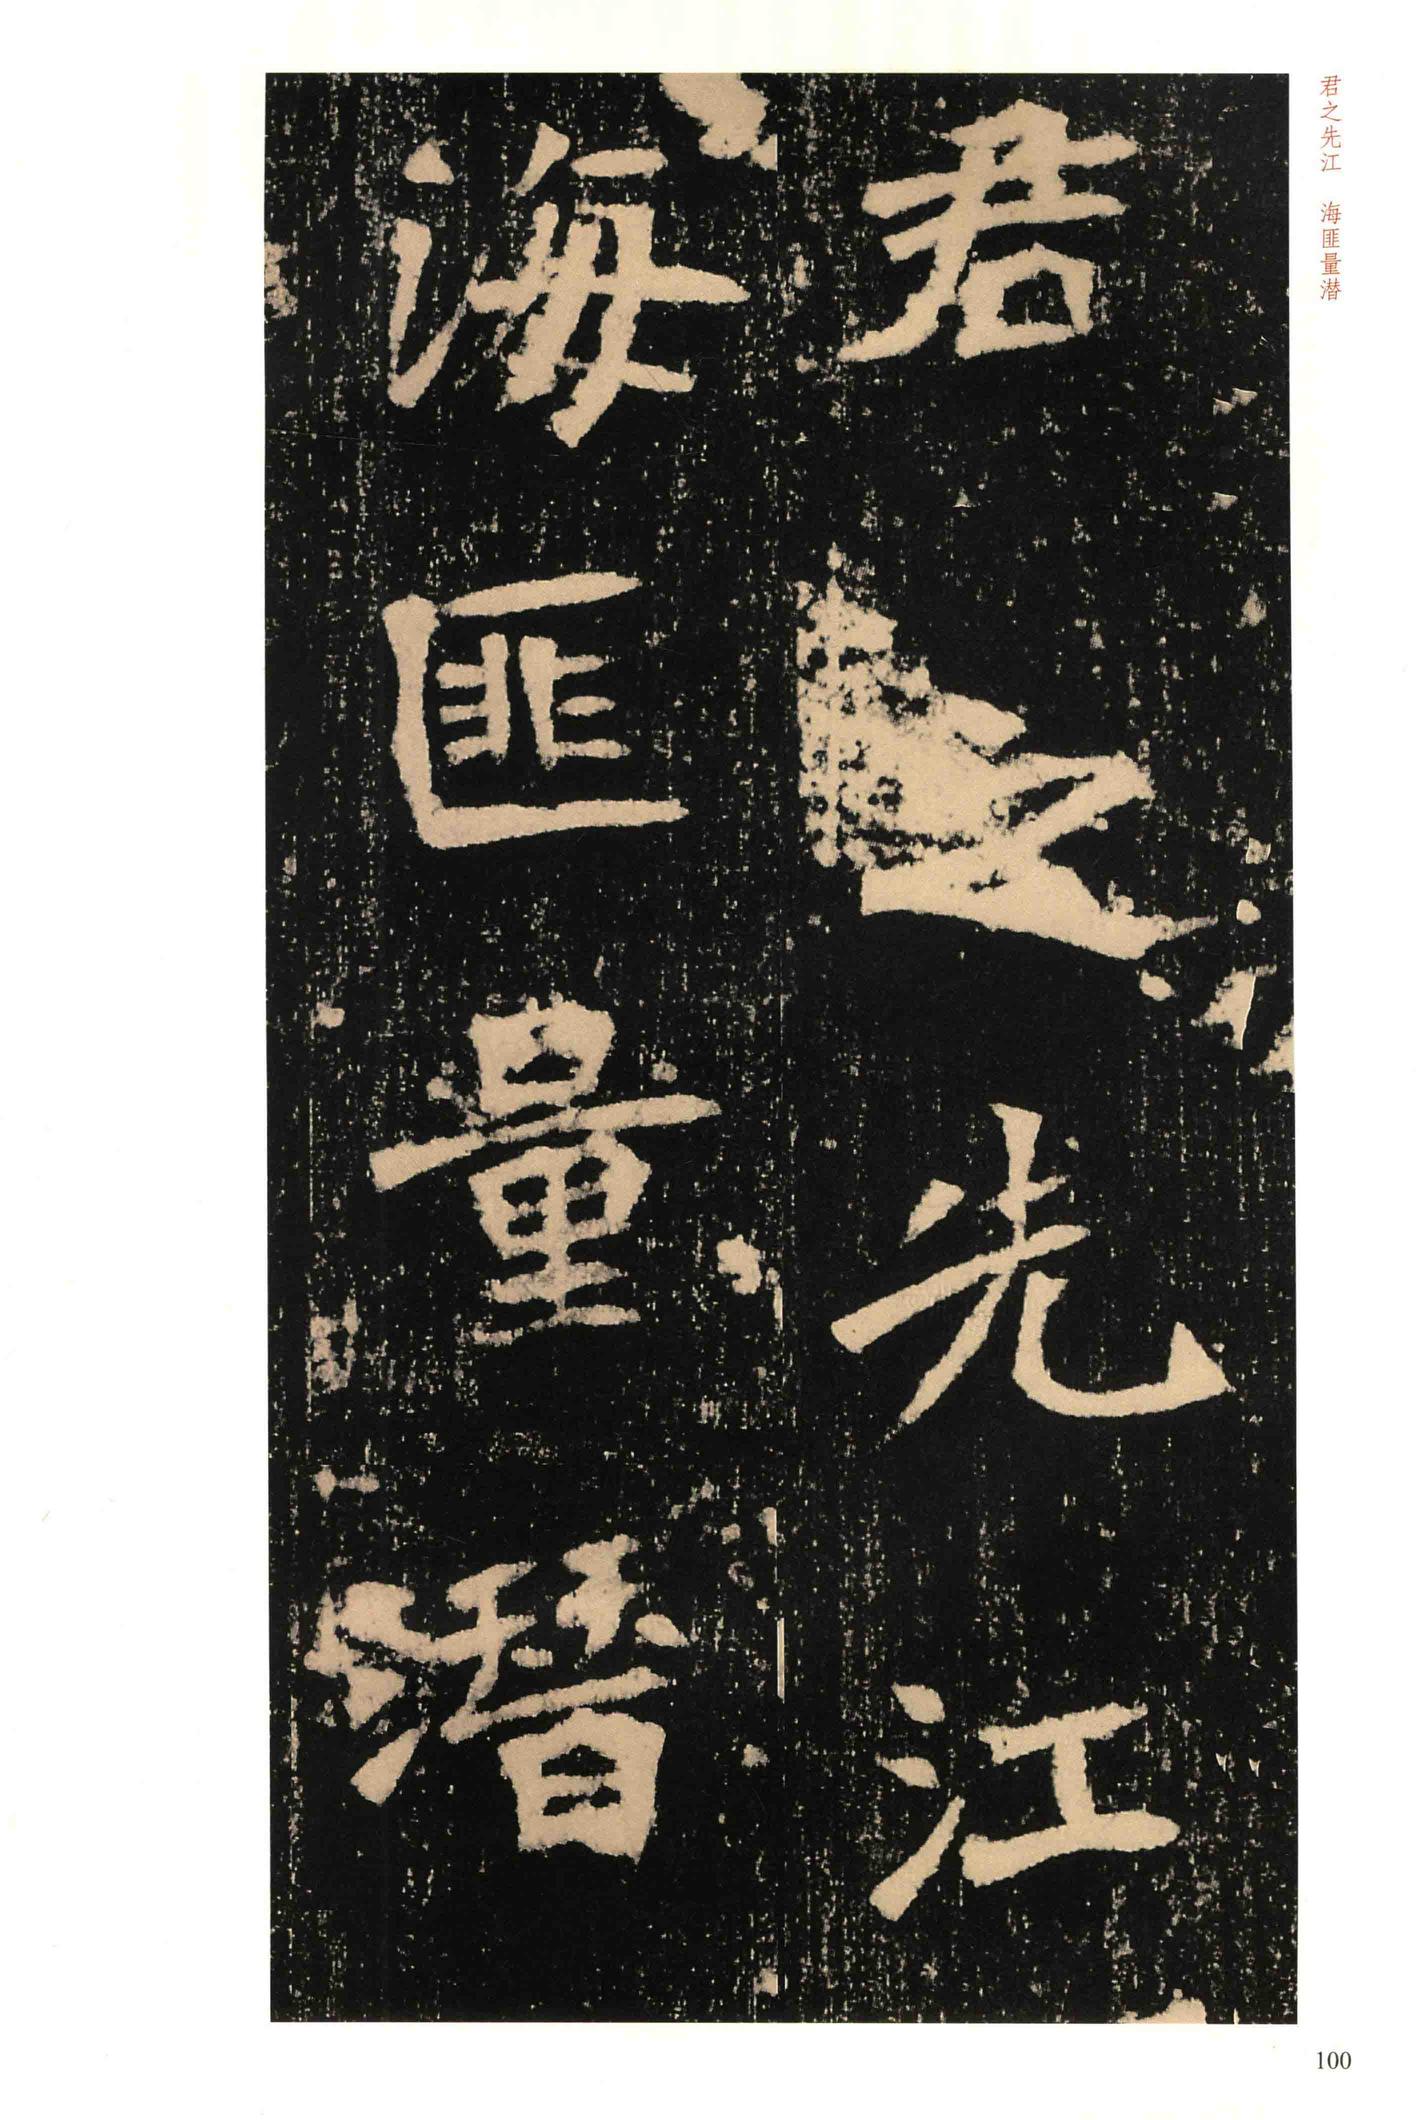 君之先江
海匪量潛
君之先江　海匪量潜
100